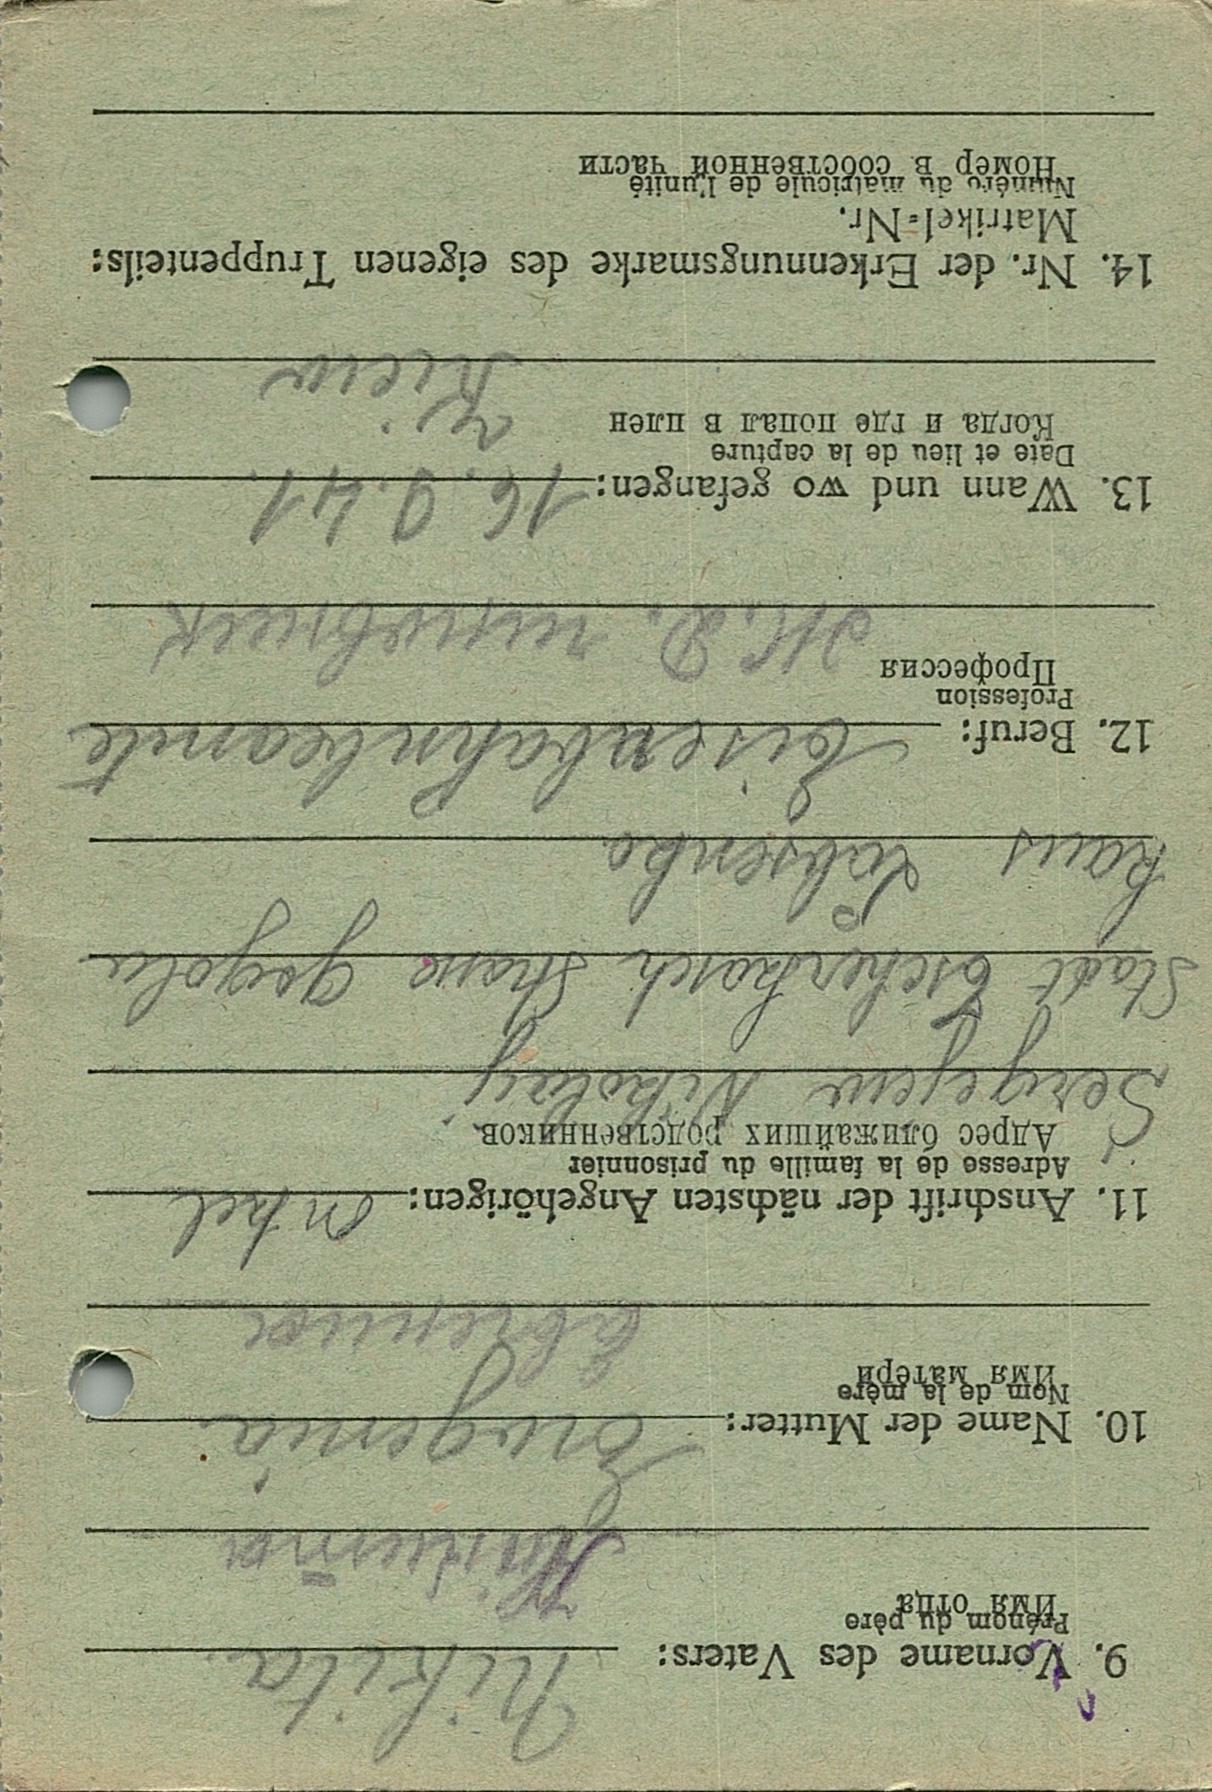 9. Vorname des Vaters: Nikita
Prénom du père
Имя отца
Никита
10. Name der Mutter: Eugenia
Nom de la mère
Имя матери
11. Anschrift der nächsten Angehörigen: Onkel
Adresse de la famille du prisonnier
Адрес ближайших родственников
Sergejew Nikolaij
Stadt Tscherkasch Strase Gogolia
haus
12. Beruf: Eisenbahnbeamte
Profession
Профессия
Ж.Д.
13. Wann und wo gefangen: 16.9.41.
Date et lieu de la capture
Когда и где попал в плен
Kiew
14. Nr. der Erkennungsmarke des eigenen Truppenteils:
Matrikel=Nr.
Numéro du matricule de l'unité
Номер в собственной части